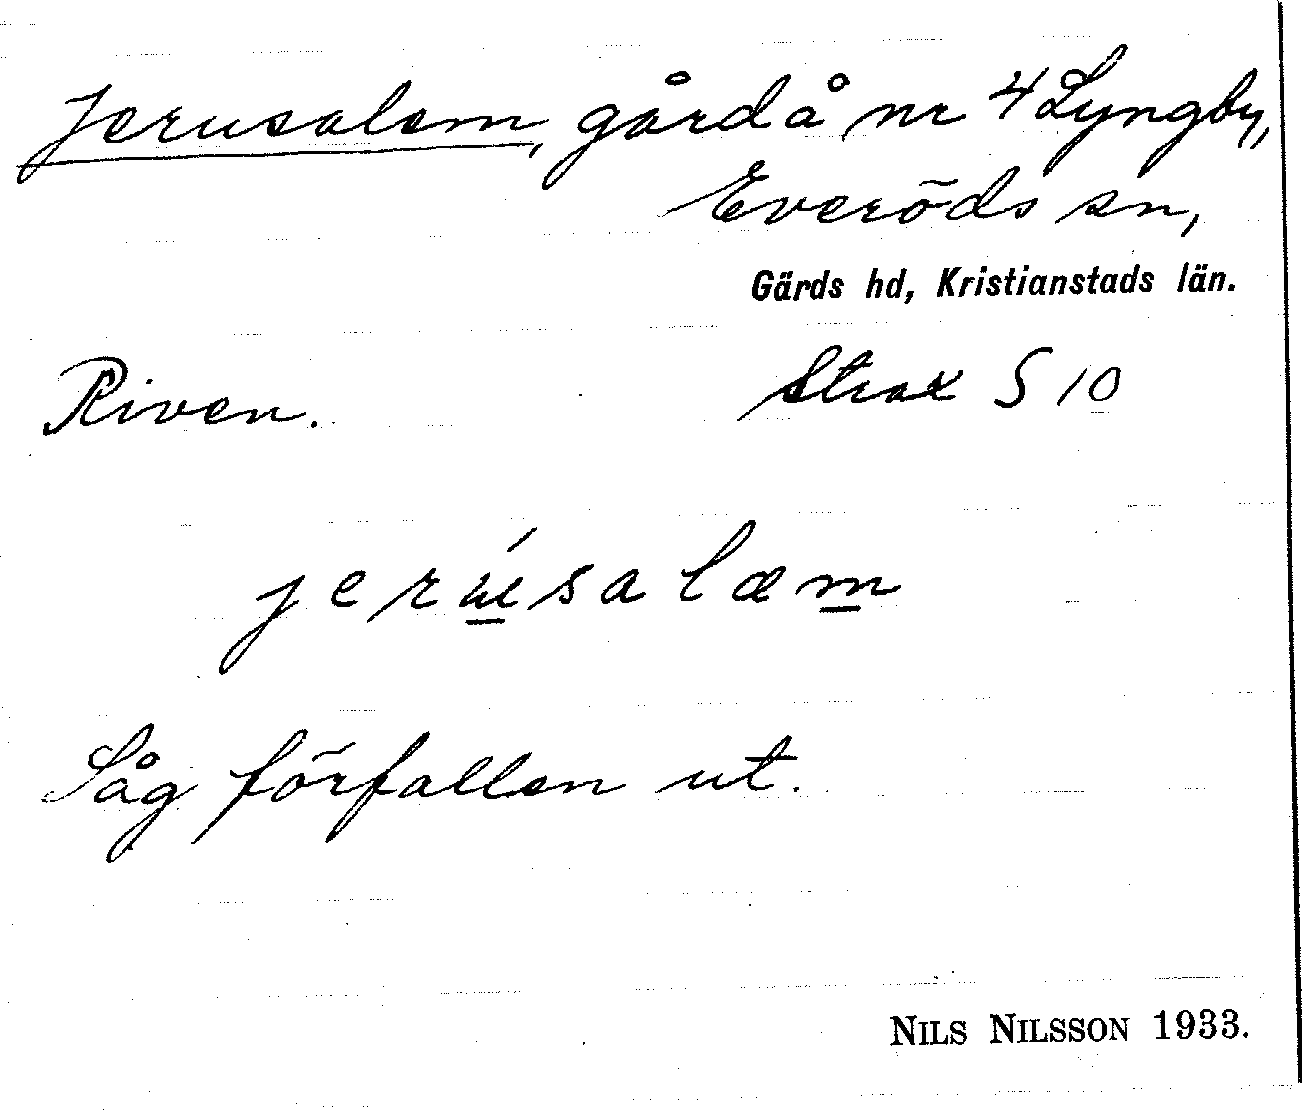 Jerusalem, gård å nr 4 Lyngby,
Everöds sn,
Gärds hd, Kristianstads län.
Riven. Strax S 10
jerúsalæm
Såg förfallen ut.
NILS NILSSON 1933.